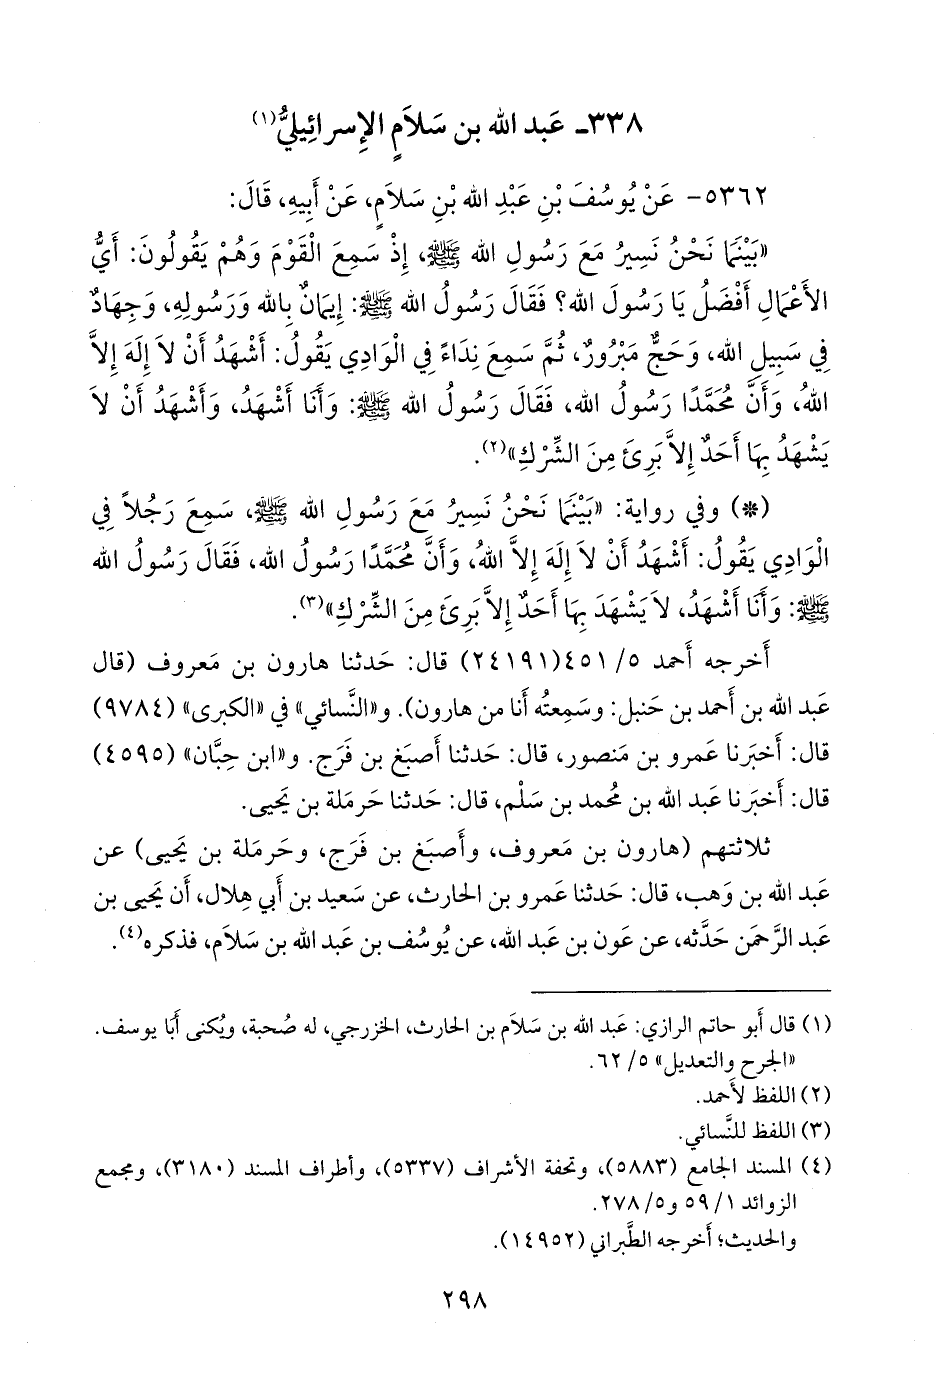 ٣٣٨ـ عَبد الله بن سَلاَمٍ الإِسرائِيليُّ(١)
٥٣٦٢- عَنْ يُوسُفَ بْنِ عَبْدِ الله بْنِ سَلاَمٍ، عَنْ أَبِيهِ، قَالَ:
«بَيْنَمَا نَحْنُ نَسِيرُ مَعَ رَسُولِ الله ﷺ، إِذْ سَمِعَ الْقَوْمَ وَهُمْ يَقُولُونَ: أَيُّ
الأَعْمَالِ أَفْضَلُ يَا رَسُولَ الله؟ فَقَالَ رَسُولُ الله ﷺ: إِيمَانٌ بِالله وَرَسُولِهِ، وَجِهَادٌ
فِي سَبِيلِ الله، وَحَجٌّ مَبْرُورٌ، ثُمَّ سَمِعَ نِدَاءً فِي الْوَادِي يَقُولُ: أَشْهَدُ أَنْ لاَ إِلَهَ إِلاَّ
اللهُ، وَأَنَّ مُحَمَّدًا رَسُولُ الله، فَقَالَ رَسُولُ الله ﷺ: وَأَنَا أَشْهَدُ، وَأَشْهَدُ أَنْ لاَ
يَشْهَدُ بِهَا أَحَدٌ إِلاَّ بَرِئَ مِنَ الشِّرْكِ»(٢).
(*) وفي رواية: «بَيْنَمَا نَحْنُ نَسِيرُ مَعَ رَسُولِ الله ﷺ، سَمِعَ رَجُلاً فِي
الْوَادِي يَقُولُ: أَشْهَدُ أَنْ لاَ إِلَهَ إِلاَّ اللهُ، وَأَنَّ مُحَمَّدًا رَسُولُ الله، فَقَالَ رَسُولُ الله
ﷺ: وَأَنَا أَشْهَدُ، لاَ يَشْهَدَ بِهَا أَحَدٌ إِلاَّ بَرِئَ مِنَ الشِّرْكِ»(٣).
أَخرجه أَحمد ٥/ ٤٥١(٢٤١٩١) قال: حَدثنا هارون بن مَعروف (قال
عَبد الله بن أَحمد بن حَنبل: وسَمِعتُه أَنا من هارون). و«النَّسائي» في «الكبرى» (٩٧٨٤)
قال: أَخبَرنا عَمرو بن مَنصور، قال: حَدثنا أَصبَغ بن فَرَج. و«ابن حِبَّان» (٤٥٩٥)
قال: أَخبَرنا عَبد الله بن مُحمد بن سَلْم، قال: حَدثنا حَرمَلة بن يَحيى.
ثلاثتهم (هارون بن مَعروف، وأَصبَغ بن فَرَج، وحَرمَلة بن يَحيى) عن
عَبد الله بن وَهب، قال: حَدثنا عَمرو بن الحارث، عن سَعيد بن أَبي هِلال، أَن يَحيى بن
عَبد الرَّحمَن حَدَّثه، عن عَون بن عَبد الله، عن يُوسُف بن عَبد الله بن سَلاَم، فذكره(٤).
(١) قال أَبو حاتم الرازي: عَبد الله بن سَلاَم بن الحارث، الخزرجي، له صُحبة، ويُكنى أَبا يوسف.
«الجرح والتعديل» ٥/ ٦٢.
(٢) اللفظ لأَحمد.
(٣) اللفظ للنَّسائي.
(٤) المسند الجامع (٥٨٨٣)، وتحفة الأشراف (٥٣٣٧)، وأطراف المسند (٣١٨٠)، ومجمع
الزوائد ١/ ٥٩ و٥/ ٢٧٨.
والحديث؛ أَخرجه الطَّبراني (١٤٩٥٢).
٢٩٨